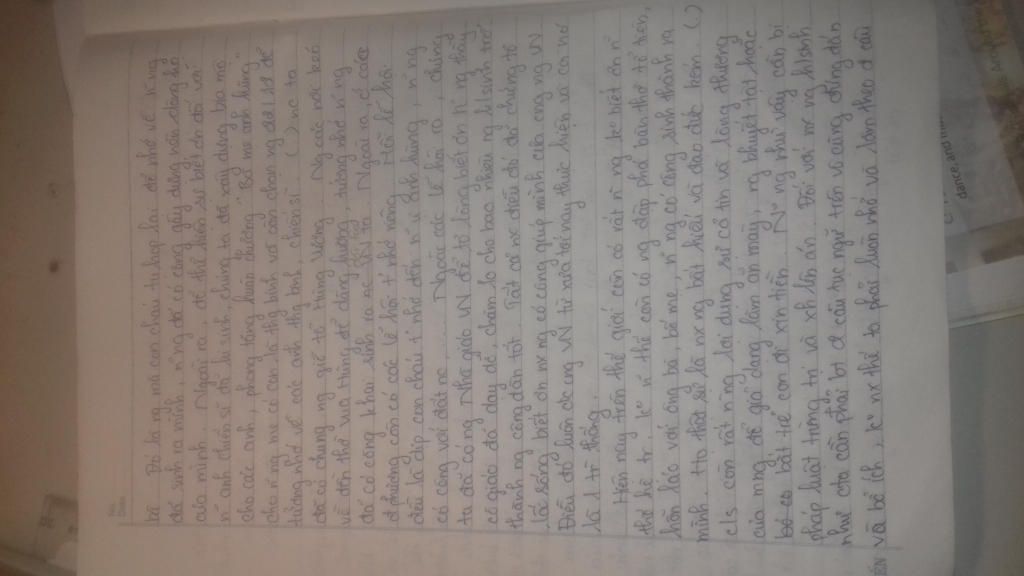 No.
Date
bè. Đó là ng mà con cháu tụ họp lại để nhớ về n~ ng
đã sinh ra mình, n~ ng đã có công gây dựng nên dòng họ
của mình. Ngoài ra, để thể hiện sự biết ơn đối với
n~ anh chiến sĩ đã hi sinh, chúng ta đã xây dựng bao mộ
cho các anh, phong tặng huân chương "Bà mẹ anh hùng"
cho n~ ng mẹ có con là thg binh
tưởng nhớ về các anh thg binh, chiến sĩ ( ) nc ta
đã có chung ng giỗ tổ Hùng Vương. Ng các nơi kéo
về đền thờ vua Hùng để dâng hương, tưởng nhớ n~ ng
đã có công khai sinh ra nc VN ta. Ngoài ra, ở các
địa phương còn có các lễ hội t' nhớ riêng. Mỗi lễ hội
đều là dịp con cháu t' nhớ đến n~ vị anh hùng, n~ ng
có công với đất nc. Ngoài các lễ hội ra, chúng
ta đã có ng Nhà giáo VN để tỏ lòng biết ơn n~ ng thầy
cô giáo đã dạy dỗ, chăm lo cho bao nhiêu ng h/sinh trở
thành ng công dân tốt. Tất cả n~ điều đó đã chứng tỏ
lối sống biết ơn ng có công giúp mình của ng VN
Điều đó luôn đc ng VN từ xưa tới nay thực hiện và coi nó
là 1 tr` thống.
Hiện nay trên thế giới còn có rất n` ng k° biết ơn n~
thế hệ tr'. k° n~ thế còn có ng đập phá bàn thờ tổ tiên,
hỗn láo với ông bà, bố mẹ, n~ ng có công sinh thành ra
mình. Họ thật sự là ng bất hiếu và đạo đức kém. ( )
c/s còn rất n` ng lợi dụng sự cả tin và lòng thương
của mng để giả dạng làm ăn mày, ng khuyết tật hoặc
bắt trẻ con đi xin tiền. N~ ng như vậy cần bị
pháp luật trừng trị và xh lên án. Đối với ng h/sinh
như cta cần phải câu tục ngữ trên vô cùng đúng đắn
và bổ ích, k° n~ thế ta phải luôn nhớ và làm theo câu
dance and